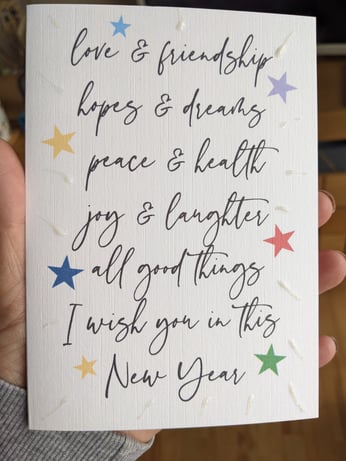 love & friendship
hopes & dreams
peace & health
joy & laughter
all good things
I wish you in this
New Year